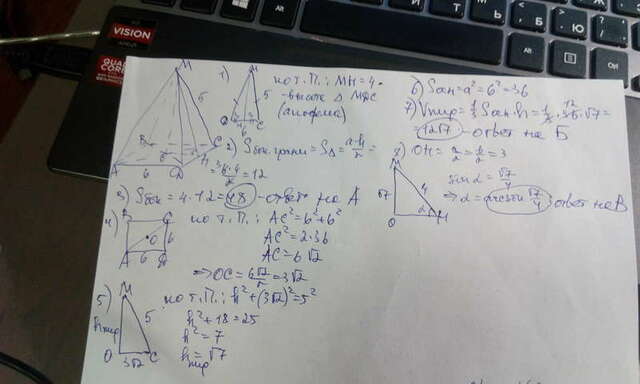 VISION
AMD
QUAD
CORE
Ч
Ь
Б
Ю
1) по т. П.: MH = 4 -
- высота Δ MDC
(апофема)
M
5
D 6 C
M
5
B
C
A 6 D
2) Sбок. грани = SΔ = a·h/2 =
= 6·4/2 = 12
3) Sбок = 4·12 = 48 - ответ на А
4) B C
O 6
A 6 D
по т. П.: AC² = 6² + 6²
AC² = 2·36
AC = 6√2
⇒ OC = 6√2/2 = 3√2
5) M
hпир 5
O 3√2 C
по т. П.: h² + (3√2)² = 5²
h² + 18 = 25
h² = 7
hпир = √7
6) Sосн = a² = 6² = 36
7) Vпир = 1/3 Sосн·h = 1/3·36·√7 =
= 12√7 - ответ на Б
8) OH = a/2 = 6/2 = 3
M
√7 4
O α H
sin α = √7/4
⇒ α = arcsin √7/4 - ответ на В